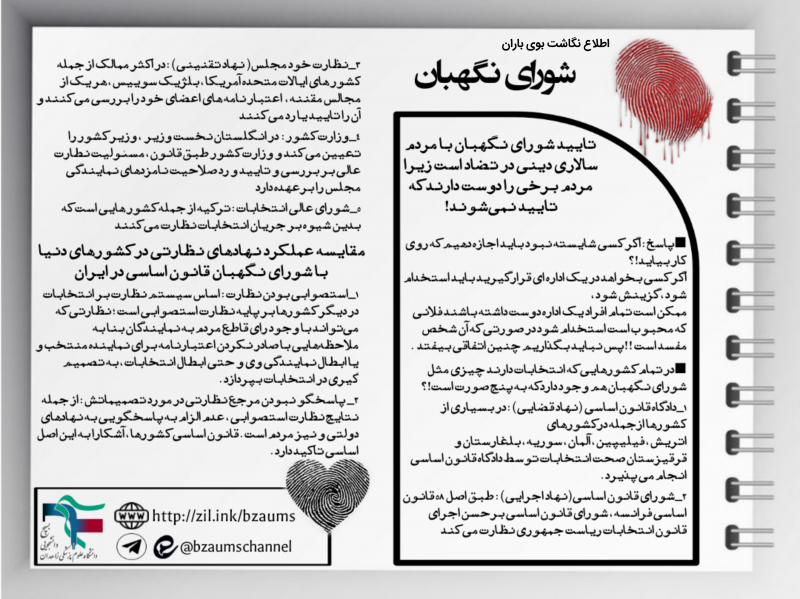 اطلاع نگاشت بوی باران
شورای نگهبان
تایید شورای نگهبان با مردم
سالاری دینی در تضاد است زیرا
مردم برخی را دوست دارند که
تایید نمی‌شوند!
■پاسخ: اگر کسی شایسته نبود باید اجازه دهیم که روی
کار بیاید!؟
اگر کسی بخواهد در یک اداره ای قرار گیرید باید استخدام
شود، گزینش شود،
ممکن است تمام افراد یک اداره دوست داشته باشند فلانی
که محبوب است استخدام شود در صورتی که آن شخص
مفسد است!! پس نباید بگذاریم چنین اتفاقی بیفتد .
■در تمام کشورهایی که انتخابات دارند چیزی مثل
شورای نگهبان هم وجود دارد که به پنج صورت است!؟
۱_دادگاه قانون اساسی (نهاد قضایی) : در بسیاری از
کشورها از جمله در کشورهای
اتریش، فیلیپین، آلمان، سوریه، بلغارستان و
قرقیزستان صحت انتخابات توسط دادگاه قانون اساسی
انجام می پذیرد.
۲_شورای قانون اساسی (نهاد اجرایی) : طبق اصل ۵۸ قانون
اساسی فرانسه، شورای قانون اساسی بر حسن اجرای
قانون انتخابات ریاست جمهوری نظارت می کند
۳_نظارت خود مجلس (نهاد تقنینی) : در اکثر ممالک از جمله
کشورهای ایالات متحده آمریکا، بلژیک سوییس، هر یک از
مجالس مقننه، اعتبارنامه های اعضای خود را بررسی می کنند و
آن را تایید یا رد می کنند
۴_وزارت کشور: در انگلستان نخست وزیر ، وزیر کشور را
تعیین می کند و وزارت کشور طبق قانون، مسئولیت نظارت
عالی بر بررسی و تایید و رد صلاحیت نامزدهای نمایندگی
مجلس را بر عهده دارد
۵_شورای عالی انتخابات: ترکیه از جمله کشورهایی است که
بدین شیوه بر جریان انتخابات نظارت می کنند
مقایسه عملکرد نهادهای نظارتی در کشورهای دنیا
با شورای نگهبان قانون اساسی در ایران
۱_استصوابی بودن نظارت: اساس سیستم نظارت بر انتخابات
در دیگر کشورها بر پایه نظارت استصوابی است؛ نظارتی که
می تواند با وجود رای قاطع مردم به نمایندگان بنا به
ملاحظه هایی با صادر نکردن اعتبارنامه برای نماینده منتخب و
یا ابطال نمایندگی وی و حتی ابطال انتخابات، به تصمیم
گیری در انتخابات بپردازد.
۲_ پاسخگو نبودن مرجع نظارتی در مورد تصمیماتش: از جمله
نتایج نظارت استصوابی، عدم الزام به پاسخگویی به نهادهای
دولتی و نیز مردم است. قانون اساسی کشورها، آشکارا به این اصل
اساسی تاکید دارد.
http://zil.ink/bzaums
@bzaumschannel
بسیج
دانشجویی
دانشگاه علوم پزشکی زاهدان